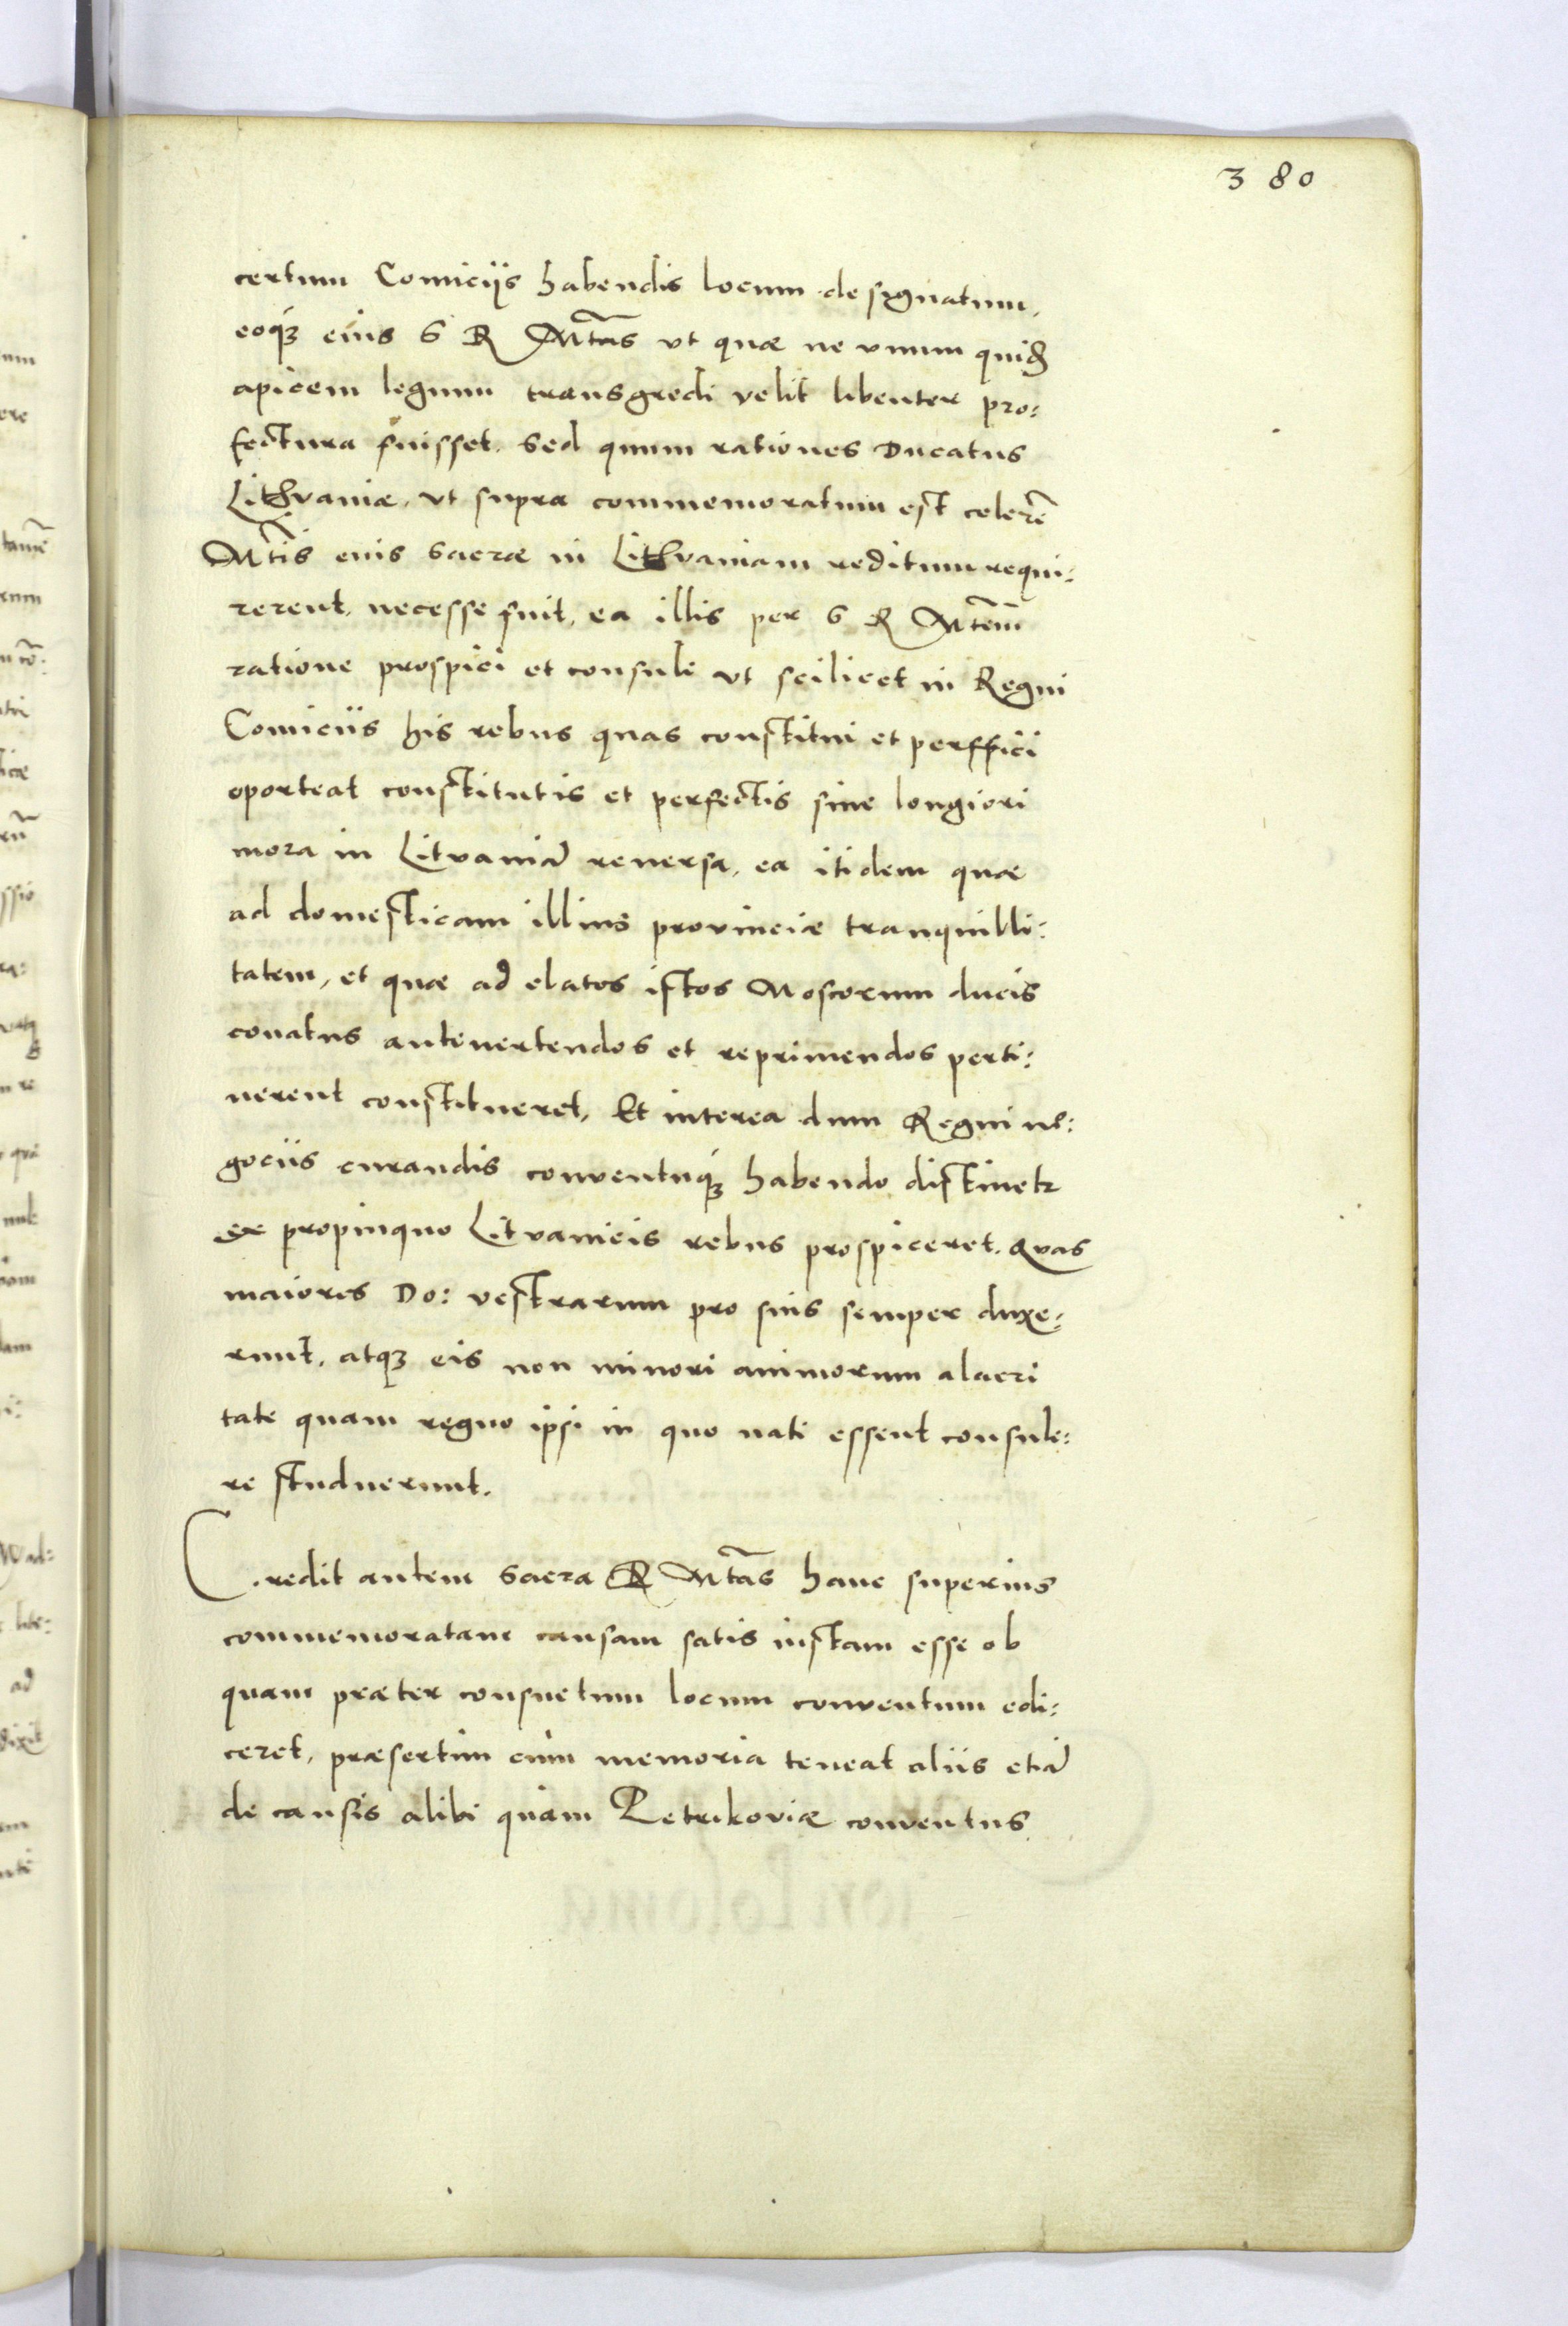 380
certum Comicijs habendis locum designatum,
eoq&#x301;ꝫ eius S R Mtas vt quæ ne vnum quid&#x0303;
apicem legum transgredi velit libenter pro:
fectura fuisset. Sed quum rationes Ducatus
Lithvaniæ, vt supra commemoratum est celerē
Mtis eius Sacræ in Lithvaniam reditum requi:
rerent, necesse fuit, ea illis per S R Mtem
ratione prospici et consuli vt scilicet in Regni
Comiciis his rebus quas constitui et perffici
oporteat constitutis et perfectis sine longiori
mora in Litvaniā reversa, ea itidem quæ
ad domesticam illius provinciæ tranquilli:
tatem, et quæ ad elatos istos Moscorum ducis
conatus antevertendos et reprimendos perti:
nerent constitueret, Et interea dum Regni ne:
gociis curandis conventuqꝫ habendo distinetr
ex propinquo Litvanicis rebus prospiceret. Quas
maiores Do: vestrarum pro suis semper duxe:
runt, atqꝫ eis non minori animorum alacri
tate quam regno ipsi in quo nati essent consule:
re studuerunt.
Credit autem Sacra R Mtas hanc superius
commemoratam causam satis iustam esse ob
quam præter consuetum locum conventum edi:
ceret, præsertim cùm memoria teneat aliis etiā
de causis alibi quàm Petrikoviæ conventus